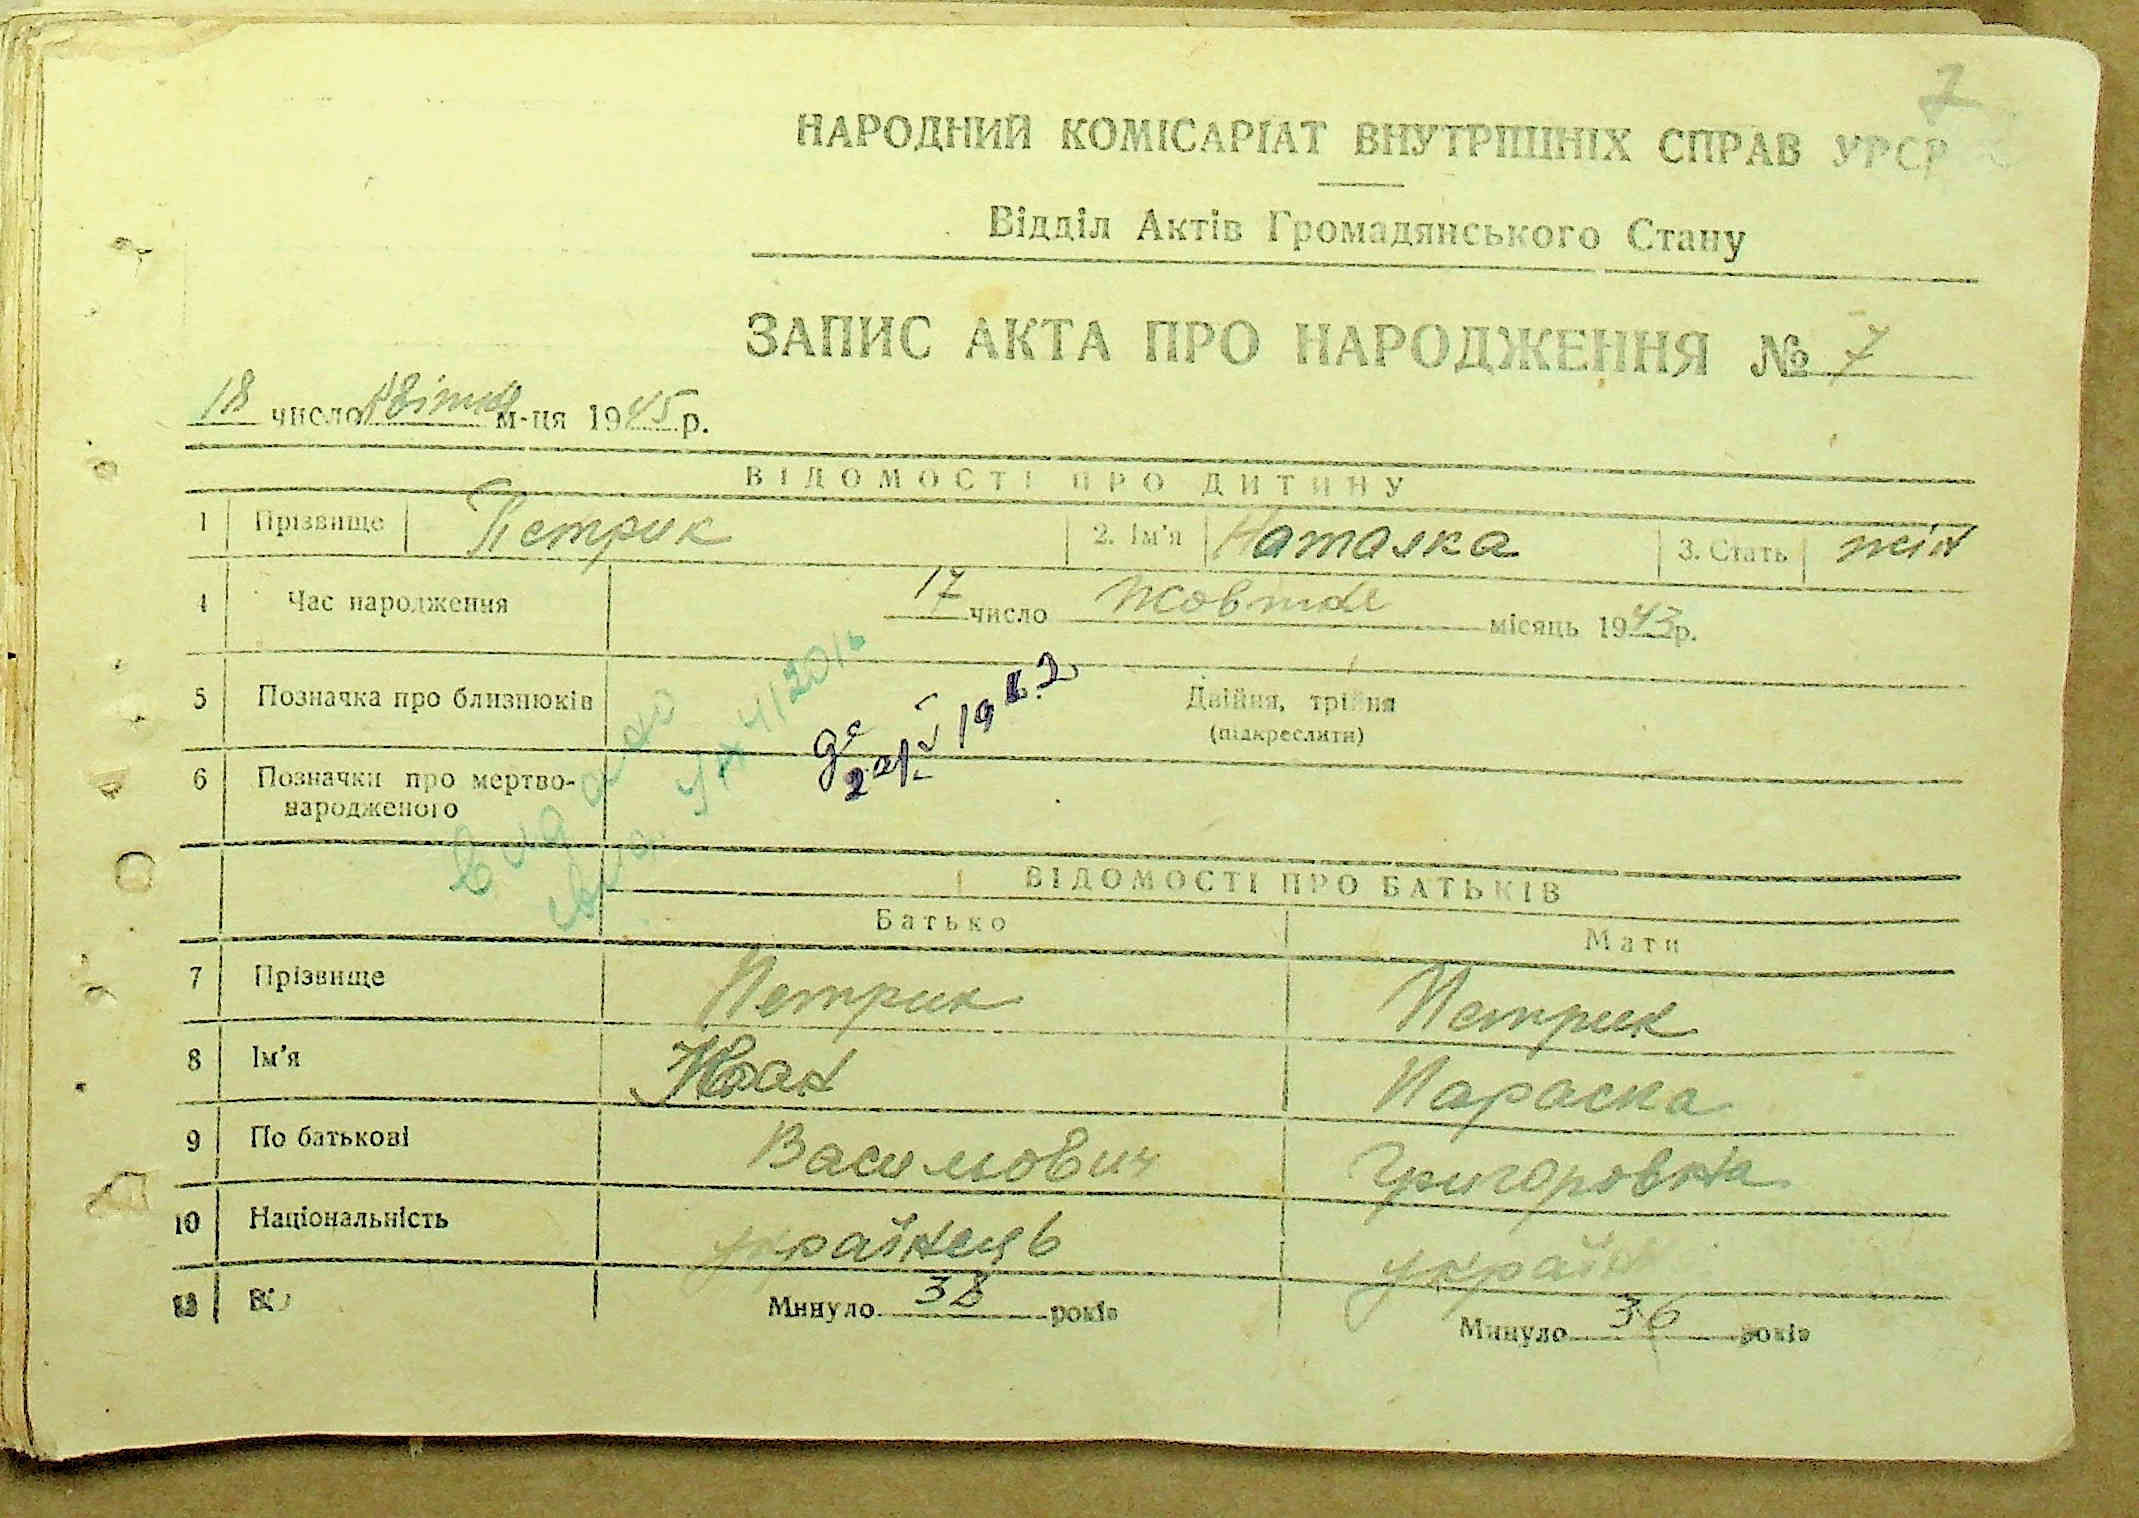 7
НАРОДНИЙ КОМІСАРІАТ ВНУТРІШНІХ СПРАВ УРСР
Відділ Актів Громадянського Стану
ЗАПИС АКТА ПРО НАРОДЖЕННЯ № 7
18 число квітня м-ця 1945 р.
ВІДОМОСТІ ПРО ДИТИНУ
1 Прізвище Петрик 2. Ім'я Наталка 3. Стать жін
4 Час народження 17 число Жовтня місяць 1943 р.
5 Позначка про близнюків Двійня, трійня
(підкреслити)
6 Позначки про мертво-
народженого
видано
ВІДОМОСТІ ПРО БАТЬКІВ
Батько Мати
7 Прізвище Петрик Петрик
8 Ім'я Іван Параска
9 По батькові Васильович Григоровна
10 Національність українець україн
Минуло 38 років Минуло 36 років